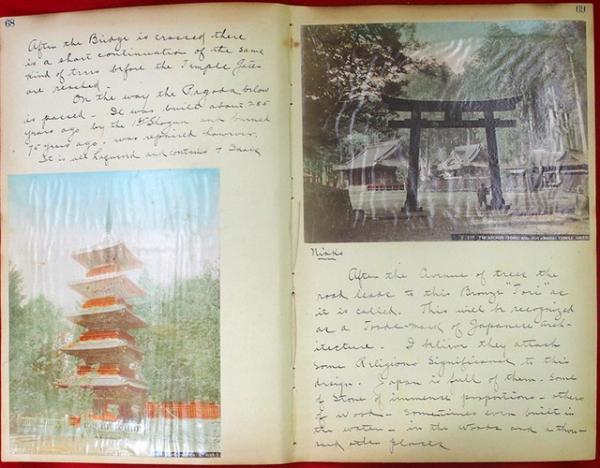 68
After the Bridge is crossed there
is a short continuation of the same
kind of trees before the Temple Gates
are reached.
On the way the Pagoda below
is passed - It was built about 255
years ago by the 1st Shogun and burned
75 years ago - was repaired however.
It is all laquered and contains
69
Nikko
After the Avenue of trees the
road leads to this Bronze "Tori" as
it is called. This will be recognized
as a Trade-mark of Japanese arch-
itecture. I believe they attach
some Religious Significance to this
design. Japan is full of them - some
of Stone of immense proportions - others
of wood - sometimes even built in
the water - in the woods and a thou-
sand other places